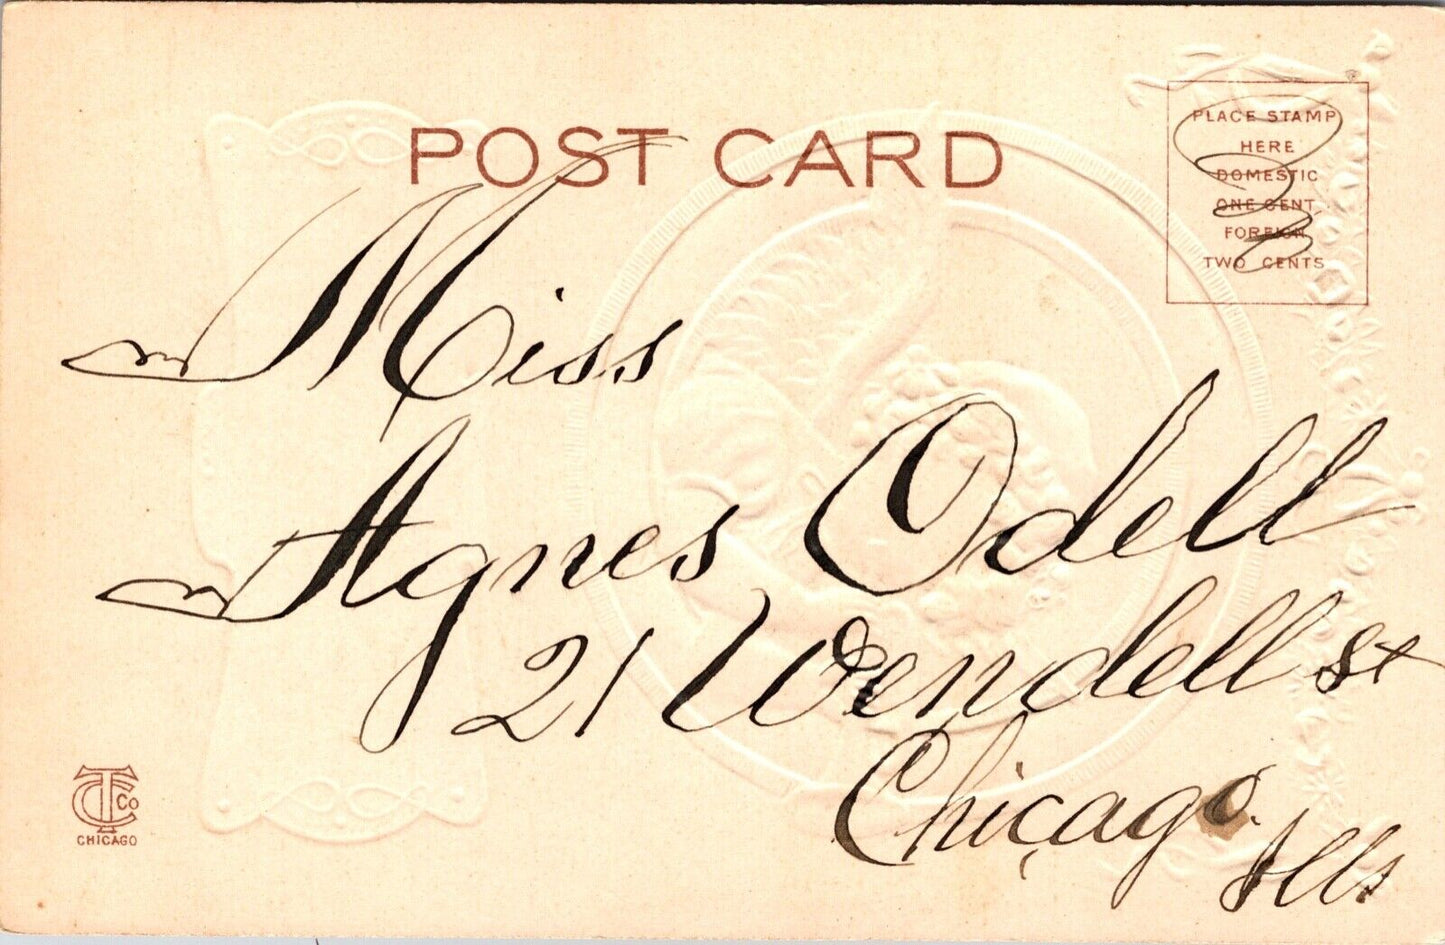 POST CARD
PLACE STAMP
HERE
DOMESTIC
ONE CENT
FOREIGN
TWO CENTS
Miss
Agnes Odell
21 Wendell st
Chicago.
Ills
CTCo
CHICAGO